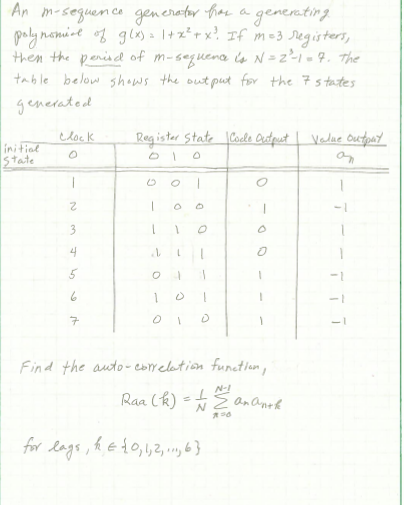 An m-sequence generator has a generating
polynomial of g(x) = 1+x²+x³. If m=3 registers,
then the period of m-sequence is N = 2³-1 = 7. The
table below shows the output for the 7 states
generated
Clock Register State Code Output Value Output
initial state 0 0 1 0 aₙ
1 0 0 1 0 1
2 1 0 0 1 -1
3 1 1 0 0 1
4 1 1 1 0 1
5 0 1 1 1 -1
6 1 0 1 1 -1
7 0 1 0 1 -1
Find the auto-correlation function,
Raa(k) = 1/N Σ_{n=0}^{N-1} aₙ aₙ₊ₖ
for lags, k ∈ {0,1,2,...,6}